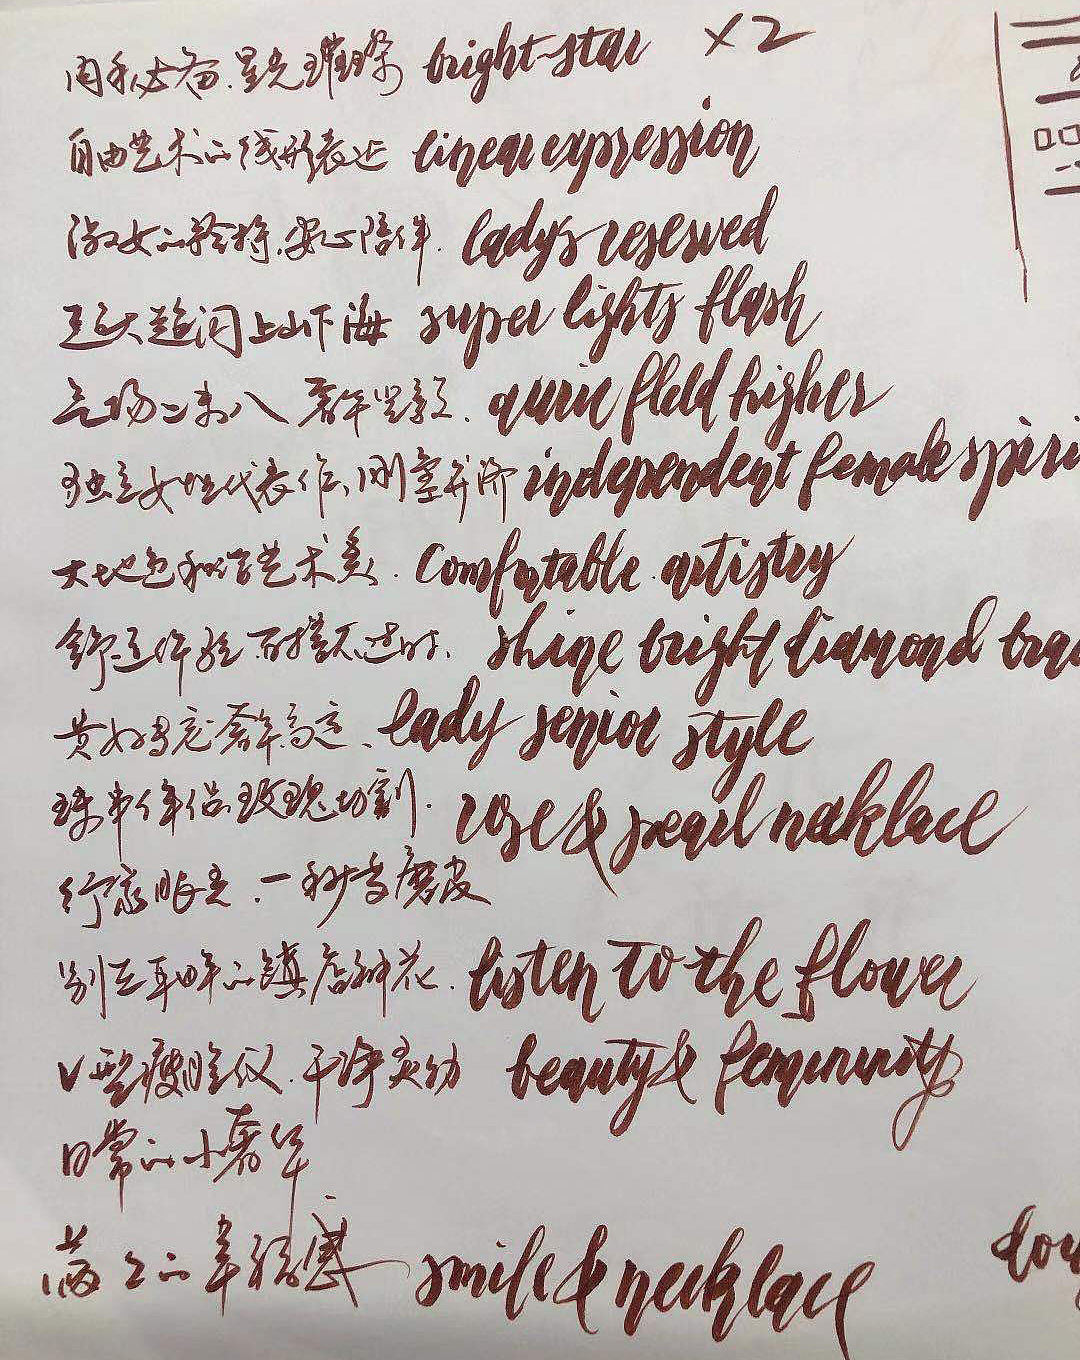 闺秀必备.星光璀璨 bright star ×2
自由艺术的线形表达 linear expression
淑女的矜持.安心陪伴. lady's reserved
巨大超闪上山下海 super lights flash
气场二米八 奢华坚款. auric field higher
独立女性代表作、刚柔并济 independent female spiri
大地色和谐艺术美. Comfortable artistry
舒适体验.百搭不过时. shine bright diamond bra
贵妇专宠奢华高定、lady senior style
珠串伴侣.玫瑰切割. rose & pearl necklace
行家眼光.一秒高磨皮
别在耳畔的镇店神花. listen to the flower
V型瘦脸仪.干净灵动 beauty & femininity
日常的小奢华
满满的幸福感 smile & necklace